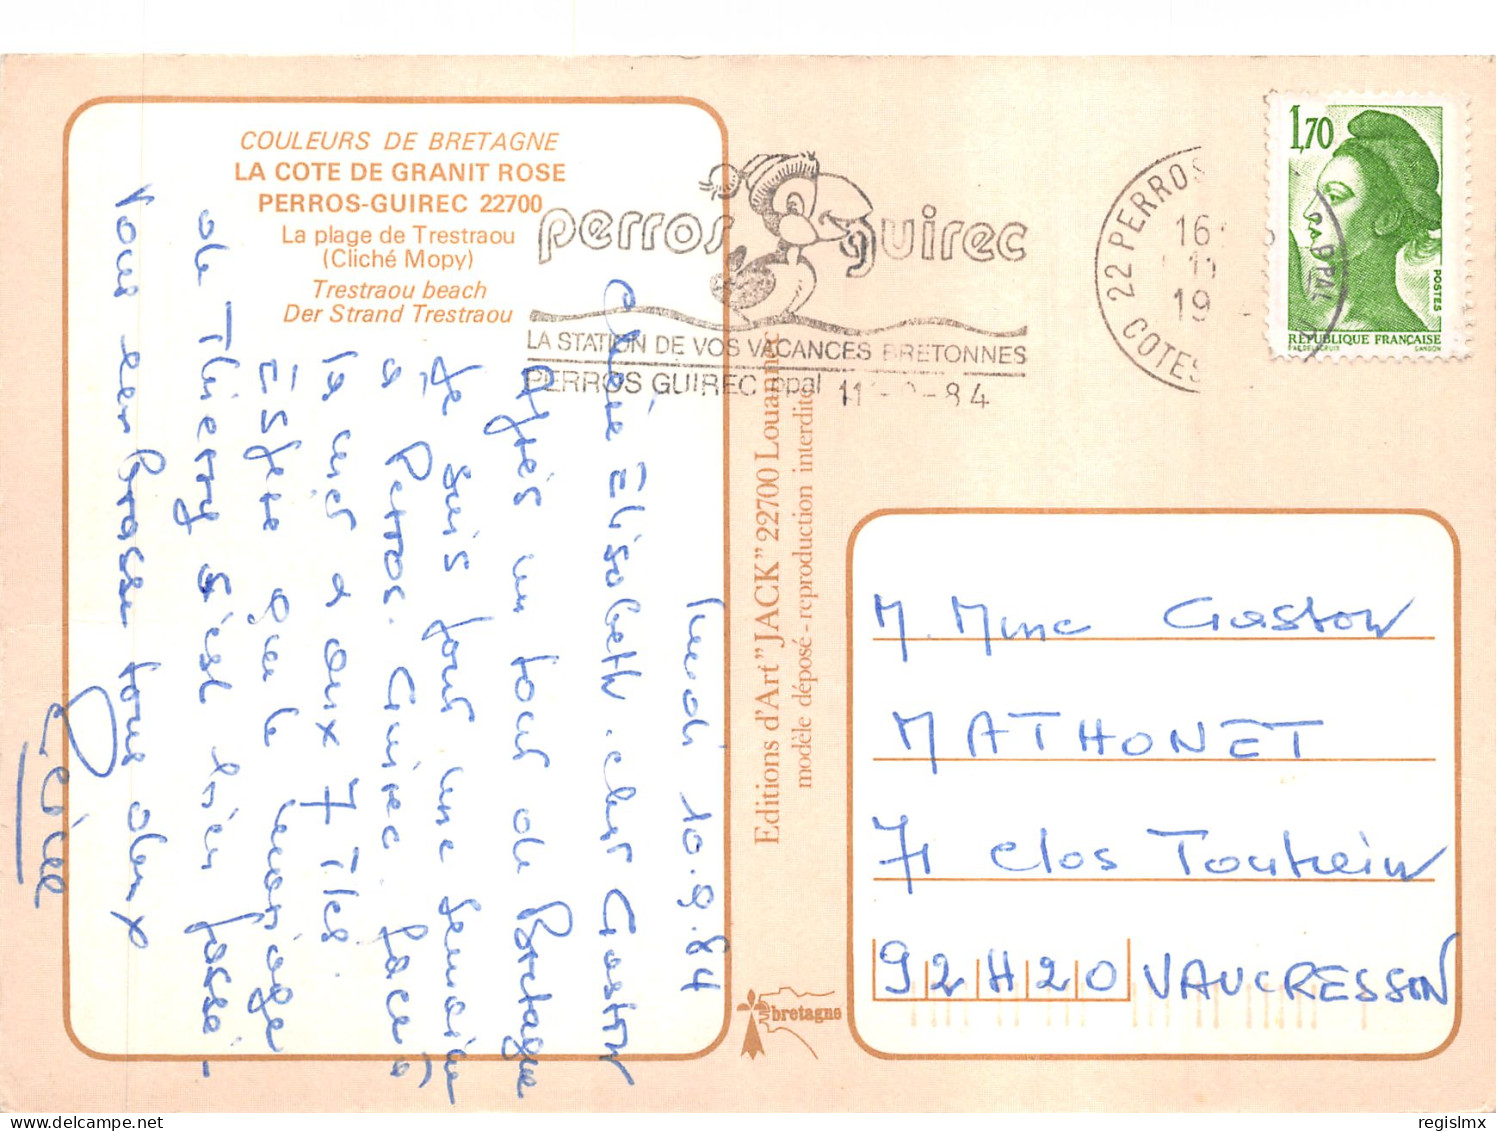 COULEURS DE BRETAGNE
LA COTE DE GRANIT ROSE
PERROS-GUIREC 22700
La plage de Trestraou
(Cliché Mopy)
Trestraou beach
Der Strand Trestraou
perros guirec
LA STATION DE VOS VACANCES BRETONNES
PERROS GUIREC ppal 11 - 9-84
22 PERROS
16
11
19
COTES
PPAL
1,70
POSTES
RÉPUBLIQUE FRANÇAISE
D'AP. DELACROIX GANDON
Lundi 10.9.84
Chère Elisabeth, cher Gaston
Après un tour de Bretagne
Je suis pour une semaine
à Perros. Guirec face à
la mer et aux 7 Iles.
Espère que le mariage
de Thierry s'est bien passé -
Vous embrasse tous deux
Editions d'Art "JACK" 22700 Louannec
modèle déposé - reproduction interdite
bretagne
M. Mme Gaston
MATHONET
71 Clos Toutrein
92420 VAUCRESSON
regislmx